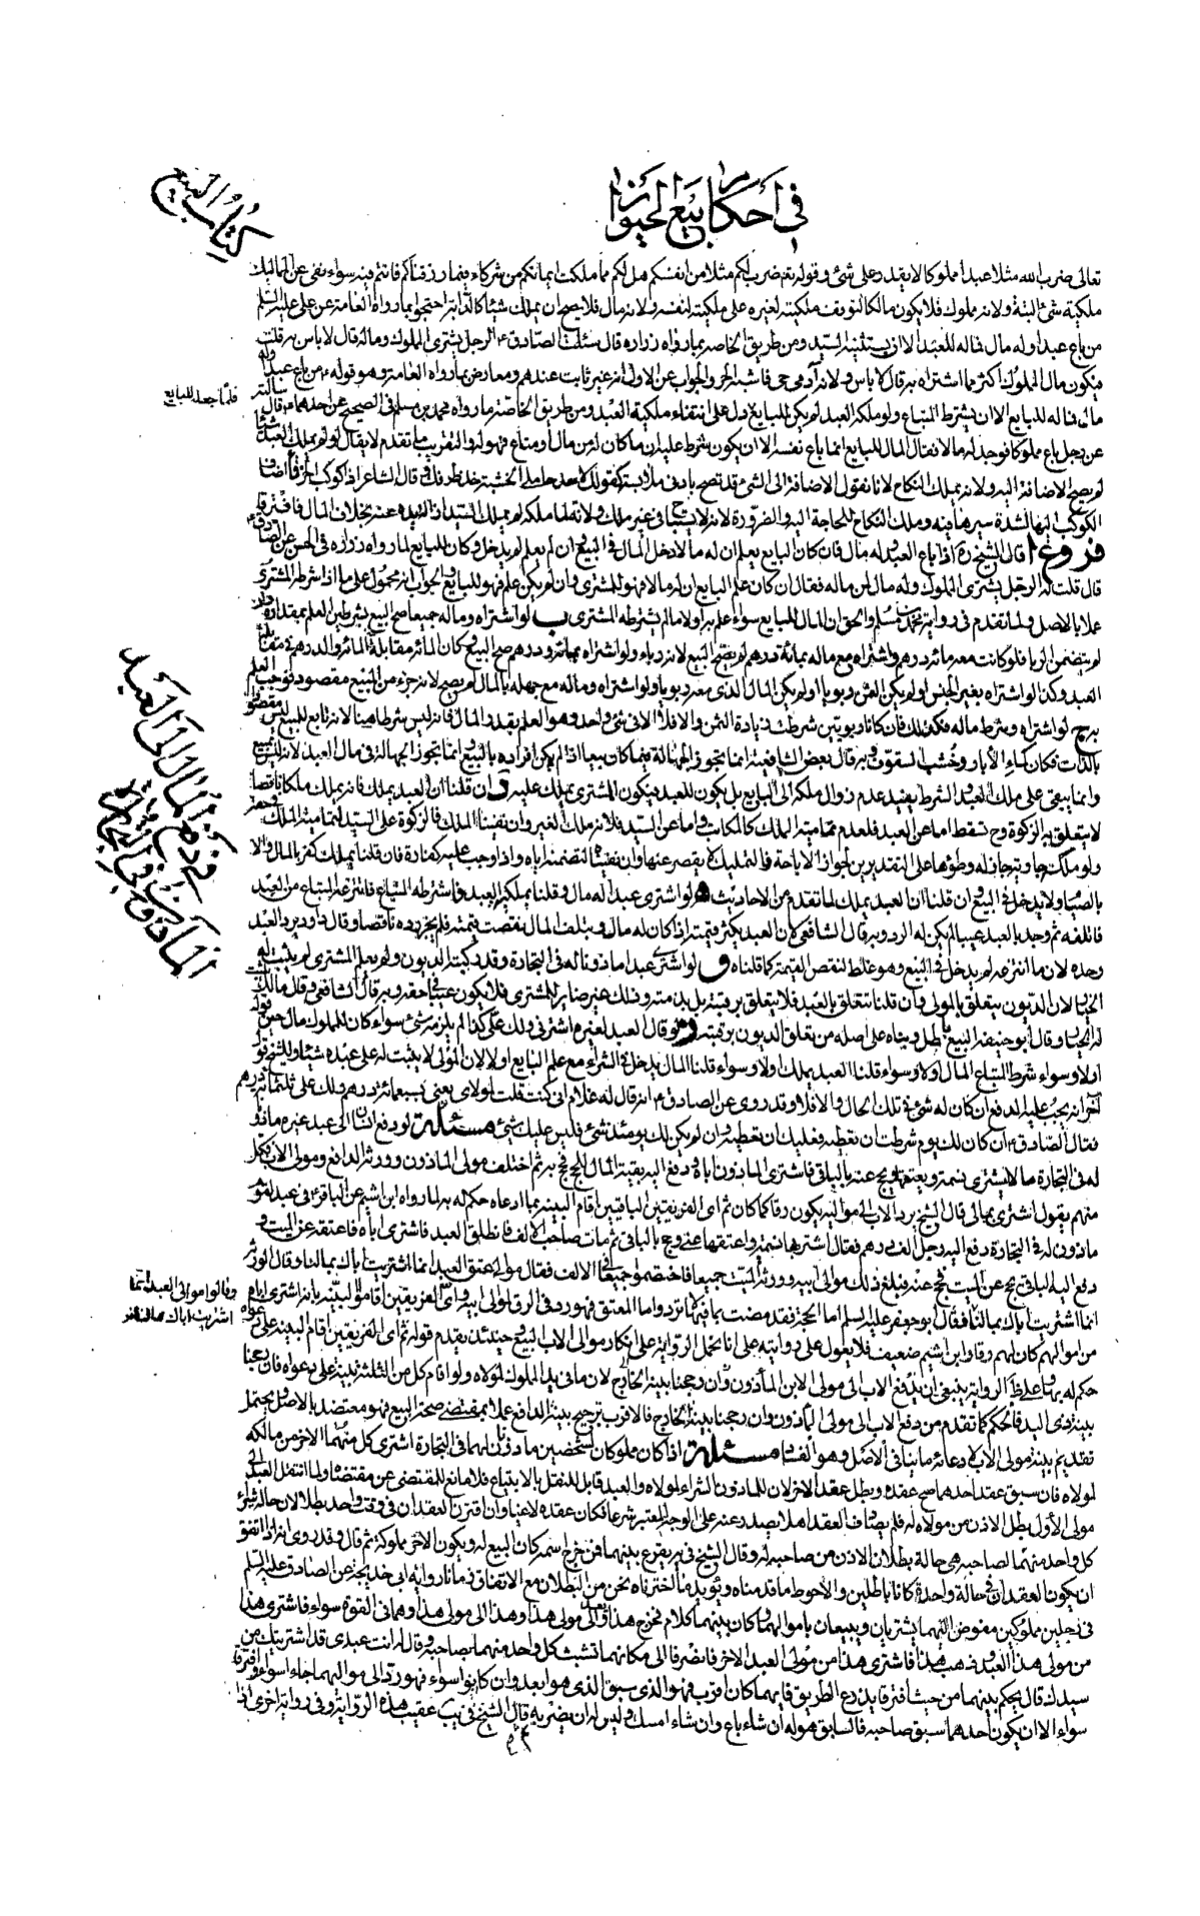 كتاب البيع
في أحكام بيع الحيوان
تعالى ضرب الله مثلا عبدا مملوكا لا يقدر على شئ وقوله تعالى ضرب لكم مثلا من انفسكم هل لكم مما ملكت ايمانكم من شركاء فيما رزقناكم فانتم فيه سواء نفى عن المماليك
ملكية شئ البتة ولانه مملوك فلا يكون مالكا لتوقف ملكيته لغيره على ملكيته لنفسه ولانه مال فلا يصح ان يملك شيئا كالدابة احتجوا بما رواه العامة عن على عليه السلم
من باع عبدا وله مال فماله للعبد الا ان يستثنيه السيد ومن طريق الخاصة بما رواه زرارة قال سئلت الصادق ع الرجل يشترى المملوك وماله قال لا باس به قلت
فيكون مال المملوك اكثر مما اشتراه به قال لا باس ولانه آدمى حى فاشبه الحر والجواب عن الاول انه غير ثابت عندهم ومعارض بما رواه العامة وهو قوله ع من باع عبدا وله
مال فماله للبايع الا ان يشترط المبتاع ولو ملكه العبد لم يكن للبايع دل على انتفاء ملكية العبد ومن طريق الخاصة ما رواه محمد بن مسلم فى الصحيح عن احدهما ع قال سالته
عن رجل باع مملوكا فوجد له مالا فقال المال للبايع انما باع نفسه الا ان يكون شرط عليه ان ما كان له من مال او متاع فهو له والتقريب ما تقدم لا يقال لو لم يملك العبد شيئا
لم يصح الاضافة اليه ولانه يملك النكاح لانا نقول الاضافة الى الشئ قد تصح بادنى ملابسة كقولك لاحد حاملى الخشبة خذ طرفك قال الشاعر اذا كوكب الخرقاء اضاف
الكوكب اليها لشدة سيرها فيه وملك النكاح للحاجة اليه والضرورة لانه لا يستباح فى غير ملك ولانه لما ملكه لم يملك السيد ازالة يده عنه بخلاف المال فافترقا
فروع ا قال الشيخ ره اذا باع العبد وله مال فان كان البايع يعلم ان له مالا دخل المال فى البيع وان لم يعلم لم يدخل وكان للبايع لما رواه زرارة فى الحسن عن الصادق ع
قال قلت له الرجل يشترى المملوك وله مال لمن ماله فقال ان كان علم البايع ان له مالا فهو للمشترى وان لم يكن علم فهو للبايع والجواب انه محمول على ما اذا شرطه المشترى
عملا بالاصل ولما تقدم فى رواية محمد بن مسلم والحق ان المال للبايع سواء علم به او لا ما لم يشترطه المشترى ب لو اشتراه وماله جميعا صح البيع بشرطين العلم بمقداره وان
لم يتضمن الربا فلو كانت معه مائة درهم واشتراه مع ماله بمائة درهم لم يصح البيع لانه ربا ولو اشتراه بمائة ودرهم صح البيع وكان المائة مقابلة المائة والدرهم فى مقابلة
العبد وكذا لو اشتراه بغير الجنس او لم يكن الثمن ربويا او لم يكن المال الذى معه ربويا ولو اشتراه وماله مع جهله بالمال لم يصح لانه جزء من المبيع مقصود فوجب العلم
به ج لو اشتراه وشرط ماله فكذلك فان كانا ربويين شرطت زيادة الثمن والا فلا
بالذات فكان كماء الآبار وخشب السقوف وبه قال بعض الشافعية انما تجوز الجهالة فيما كان تبعا اذا لم يكن افراده بالبيع وانما تجوز الجهالة فى مال العبد لانه ليس بمبيع
وانما يبقى على ملك العبد والشرط يفيد عدم زوال ملكه الى البايع بل يكون للعبد فيكون المشترى يملك عليه
لا يتعلق به الزكوة وح تسقط اما عن العبد فلعدم تمامية الملك كالمكاتب واما عن السيد فلانه ملك الغير وان نفينا الملك فالزكوة على السيد لتمامية الملك فى حقه
ولو ملكه جارية جاز له وطؤها على التقديرين لجواز الاباحة
بالصيام ولا يدخل فى البيع ان قلنا ان العبد يملك لما تقدم من الاحاديث ه لو اشترى عبدا له مال وقلنا يملك العبد فاشترطه المبتاع فانتزعه المبتاع من العبد
فاتلفه ثم وجد بالعبد عيبا لم يكن له الرد وبه قال الشافعى لان العبد يكثر قيمته اذا كان له مال وبتلف المال نقصت قيمته فلم يجز رده ناقصا وقال داود يرد العبد
وحده لان ما انتزعه لم يدخل فى البيع وهو غلط لنقص القيمة كما قلناه و لو اشترى عبدا ماذونا له فى التجارة وقد ركبته الديون ولم يعلم المشترى لم يثبت له
الخيار لان الديون يتعلق بالمولى وان قلنا تتعلق بالعبد فلا يتعلق برقبته بل بذمته وذلك غير ضاير للمشترى فلا يكون عيبا فى حقه وبه قال الشافعى وقال مالك يثبت
له الخيار وقال ابو حنيفة البيع باطل وبناه على اصله من تعلق الديون برقبته ز لو قال العبد لغيره اشترنى ولك على كذا لم يلزمه شئ سواء كان للمملوك مال حين قوله
او لا وسواء شرط المبتاع المال او لا وسواء قلنا العبد يملك او لا وسواء قلنا المال يدخل فى الشراء مع علم البايع او لا لان المولى لا يثبت له على عبده شئ وللشيخ قول
آخر انه يجب عليه الدفع ان كان له شئ فى تلك الحال والا فلا وقد روى عن الصادق ع انه قال له غلام انى كنت قلت لمولاى بعنى بسبعمائة درهم ولك على ثلثمائة درهم
فقال الصادق ع ان كان لك يوم شرطت ان تعطيه فعليك ان تعطيه وان لم يكن لك يومئذ شئ فليس عليك شئ مسئلة لو دفع انسان الى عبد غيره ماذون
له فى التجارة مالا ليشترى نسمة ويعتقها ويحج عنه بالباقى فاشترى الماذون اباه ودفع اليه بقية المال للحج فحج به ثم اختلف مولى الماذون وورثة الدافع ومولى الاب فكل
منهم يقول اشترى بمالى قال الشيخ يرد الاب الى مواليه يكون رقا كما كان ثم اى الفريقين الباقيين اقام البينة بما ادعاه حكم له به لما رواه ابن اشيم عن الباقر ع فى عبد لقوم
ماذون له فى التجارة دفع اليه رجل الف درهم فقال اشتر بها نسمة واعتقها عنى وحج بالباقى ثم مات صاحب الالف فانطلق العبد فاشترى اباه فاعتقه عن الميت و
دفع اليه الباقى يحج عن الميت فحج عنه فبلغ ذلك مولى ابيه وورثة الميت جميعا فاختصموا جميعا فى الالف فقال موالى معتق العبد انما اشتريت اباك بمالنا وقال الورثة
انما اشتريت اباك بمالنا فقال ابو جعفر عليه السلم اما الحجة فقد مضت بما فيها لا ترد واما المعتق فهو رد فى الرق لمولى ابيه واى الفريقين اقاموا البينة بانه اشترى اباه
من اموالهم كان لهم رقا وابن اشيم ضعيف فلا يعول على روايته على انا نحمل الرواية على انكار مولى الاب البيع وحينئذ يقدم قوله ثم اى الفريقين اقام البينة على دعواه
حكم له بها وعلى ظاهر الرواية ينبغى ان يدفع الاب الى مولى الابن المأذون وان رجحنا بينة الخارج لان ما فى يد المملوك لمولاه ولو اقام كل من الثلثة بينة على دعواه فان رجحنا
بينة ذى اليد فالحكم كما تقدم من دفع الاب الى مولى الماذون وان رجحنا بينة الخارج فالاقرب ترجيح بينة الدافع عملا بمقتضى صحة البيع فهو معتضد بالاصل ويحتمل
تقديم بينة مولى الاب لادعائه ما ينافى الاصل وهو الفساد مسئلة اذا كان مملوكان لشخصين ماذونان لهما فى التجارة اشترى كل منهما الآخر من مالكه
لمولاه فان سبق عقد احدهما صح عقده وبطل عقد الآخر لان للماذون الشراء لمولاه والعبد قابل للنقل بالابتياع فلا مانع للمقتضى عن مقتضاه ولما انتقل العبد الى
مولى الاول بطل الاذن من مولاه له فلم يصادف العقد اهلا يصدر عنه على الوجه المعتبر شرعا فكان عقده لاغيا وان اقترن العقدان فى وقت واحد بطلا لان حالة شراء
كل واحد منهما لصاحبه هى حالة بطلان الاذن من صاحبه له وقال الشيخ فى يه يقرع بينهما فمن خرج اسمه كان البيع له ويكون الآخر مملوكه ثم قال وقد روى انه اذا اتفق
ان يكون العقدان فى حالة واحدة كانا باطلين والاحوط ما قدمناه ويؤيد ما اخترناه نحن من البطلان مع الاتفاق زمانا رواية ابى خديجة عن الصادق عليه السلم
فى رجلين مملوكين مفوض اليهما يشتريان ويبيعان باموالهما وكان بينهما كلام فخرج هذا يعدو الى مولى هذا وهذا الى مولى هذا وهما فى القوة سواء فاشترى هذا
من مولى هذا العبد وذهب هذا فاشترى هذا من مولى العبد الآخر فانصرفا الى مكانهما تشبث كل واحد منهما بصاحبه وقال له انت عبدى قد اشتريتك من
سيدك قال يحكم بينهما من حيث افترقا يذرع الطريق فايهما كان اقرب فهو الذى سبق الذى هو ابعد وان كانوا سواء فهو رد الى مواليهما جاءا سواء وافترقا
سواء الا ان يكون احدهما سبق صاحبه فالسابق هو له ان شاء باع وان شاء امسك وليس له ان يضر به قال الشيخ فى يب عقيب هذه الرواية وفى رواية اخرى اذا
فلما جعله للبايع
فى دفع المال الى العبد
الماذون فى التجارة
وقالوا موالى العبد انما
اشتريت اباك بمالنا